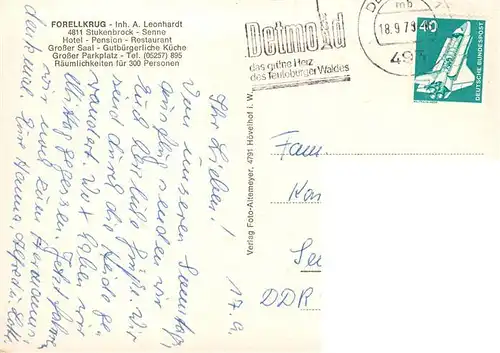 FORELLKRUG - Inh. A. Leonhardt
4811 Stukenbrock - Senne
Hotel - Pension - Restaurant
Großer Saal - Gutbürgerliche Küche
Großer Parkplatz - Tel. (05257) 895
Räumlichkeiten für 300 Personen
Detmold
das grüne Herz
des Teutoburger Waldes
mb
18.9.79
40
DEUTSCHE BUNDESPOST
Verlag Foto-Altemeyer, 4791 Hövelhof i. W.
17.9.
Ihr Lieben!
Von unserem Samstags
ausflug senden wir
Euch herzliche Grüße. Wir
sind durch die Heide ge
wandert. Dort haben wir
Mittag gegessen. Jetzt fahren
wir noch zum Hermanns
denkmal. Eure Hanna, Alfred u.
Fam.
DDR